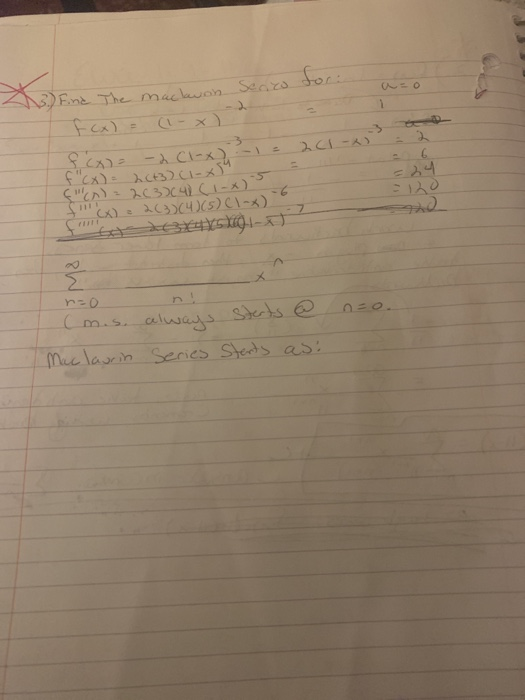 3) Find The maclaurin Series for: a=0
f(x) = (1-x)^-2 = 1
f'(x) = -2(1-x)^-3 · -1 = 2(1-x)^-3 = 2
f''(x) = 2(+3)(1-x)^-4 = = 6
f'''(x) = 2(3)(4)(1-x)^-5 = 24
f''''(x) = 2(3)(4)(5)(1-x)^-6 = 120
∞
Σ ________ x^n
n=0 n!
(m.s. always starts @ n=0.
Maclaurin Series Starts as: